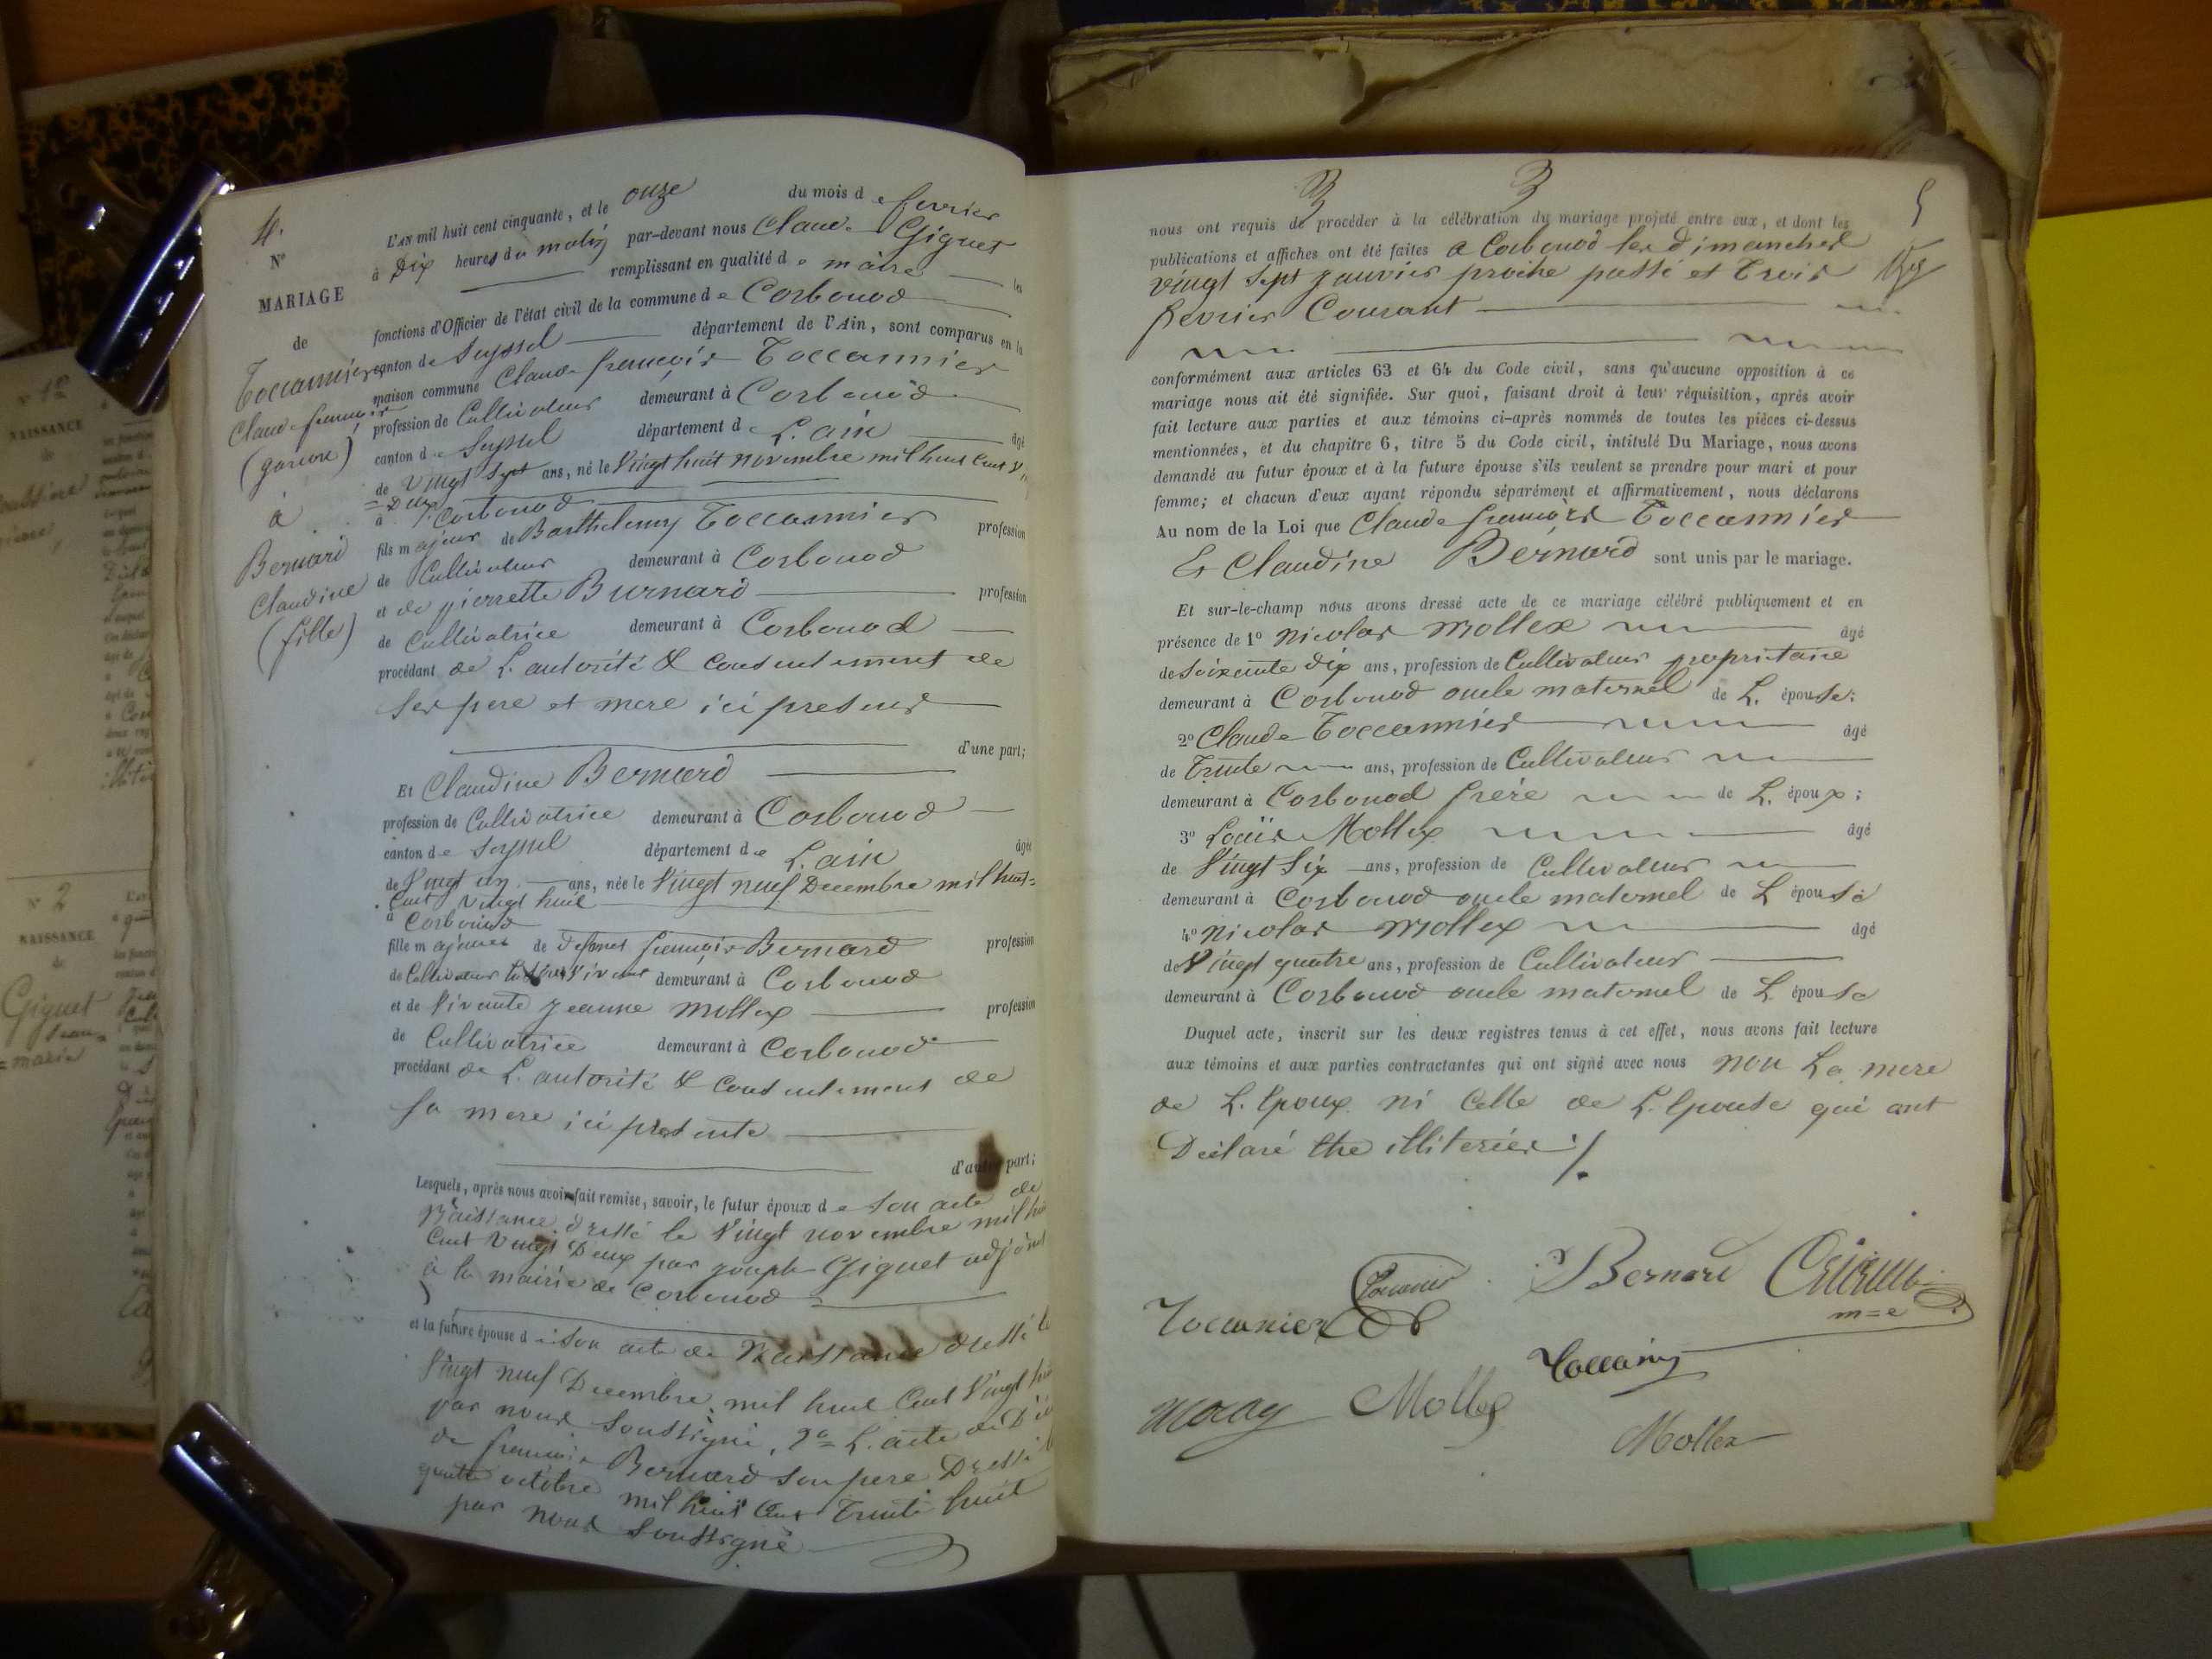 4.
N°
MARIAGE
de
Toccannier
Claude francois
(garcon)
à
Bernard
Claudine
(fille)
L'AN mil huit cent cinquante, et le onze du mois de fevrier
à Dix heures du matin par-devant nous Claude Giguet
remplissant en qualité de maire les
fonctions d'Officier de l'état civil de la commune de Corbonod
canton de Seyssel département de l'Ain, sont comparus en la
maison commune Claude francois Toccannier
profession de Cultivateur demeurant à Corbonod
canton de Seyssel département de L'ain âgé
de Vingt Sept ans, né le Vingt huit novembre mil huit Cent V
= Deux
à Corbonod
fils majeur de Barthelemy Toccannier profession
de Cultivateur demeurant à Corbonod
et de pierrette Burnard profession
de Cultivatrice demeurant à Corbonod
procédant de L'autorité & Consentement de
Ses pere et mere ici presents
d'une part;
Et Claudine Bernard
profession de Cultivatrice demeurant à Corbonod
canton de Seyssel département de L'ain âgée
de Vingt un ans, née le Vingt neuf Decembre mil huit=
Cent Vingt huit
à Corbonod
fille majeure de defunt francois Bernard profession
de Cultivateur demeurant à Corbonod
et de Vivante Jeanne Mollex profession
de Cultivatrice demeurant à Corbonod
procédant de L'autorité & Consentement de
Sa mere ici presente
d'autre part;
Lesquels, après nous avoir fait remise, savoir, le futur époux de Son acte de
Naissance dressé le Vingt novembre mil hui
Cent Vingt Deux par Joseph Giguet adjoint
à la mairie de Corbonod
et la future épouse de Son acte de Naissance dressé le
Vingt neuf Decembre mil huit Cent Vingt hui
par nous Soussigné, 2° L'acte de Dé
de francois Bernard Son pere Dressé l
quatre octobre mil huit Cent Trente huit
par nous Soussigné
3 3 5
nous ont requis de procéder à la célébration du mariage projeté entre eux, et dont les
publications et affiches ont été faites a Corbonod les dimanches
vingt Sept Janvier proche passé et Trois
fevrier Courant
conformément aux articles 63 et 64 du Code civil, sans qu'aucune opposition à ce
mariage nous ait été signifiée. Sur quoi, faisant droit à leur réquisition, après avoir
fait lecture aux parties et aux témoins ci-après nommés de toutes les pièces ci-dessus
mentionnées, et du chapitre 6, titre 5 du Code civil, intitulé Du Mariage, nous avons
demandé au futur époux et à la future épouse s'ils veulent se prendre pour mari et pour
femme; et chacun d'eux ayant répondu séparément et affirmativement, nous déclarons
Au nom de la Loi que Claude francois Toccannier
Et Claudine Bernard sont unis par le mariage.
Et sur-le-champ nous avons dressé acte de ce mariage célébré publiquement et en
présence de 1° Nicolas Mollex âgé
de Soixante dix ans, profession de Cultivateur proprietaire
demeurant à Corbonod oncle maternel de L'épouse;
2° Claude Toccannier âgé
de Trente ans, profession de Cultivateur
demeurant à Corbonod frère de L'époux;
3° Louis Mollex âgé
de Vingt Six ans, profession de Cultivateur
demeurant à Corbonod oncle maternel de L'épouse
4° Nicolas Mollex âgé
de Vingt quatre ans, profession de Cultivateur
demeurant à Corbonod oncle maternel de L'épouse
Duquel acte, inscrit sur les deux registres tenus à cet effet, nous avons fait lecture
aux témoins et aux parties contractantes qui ont signé avec nous non La mere
de L'Epoux ni Celle de L'Epouse qui ont
Declaré être illiterées ./.
Bernard
Toccanier
m=e
Mollex
Mollex
N° 1er
NAISSANCE
de
N° 2
NAISSANCE
de
Giguet
Jean
=marie